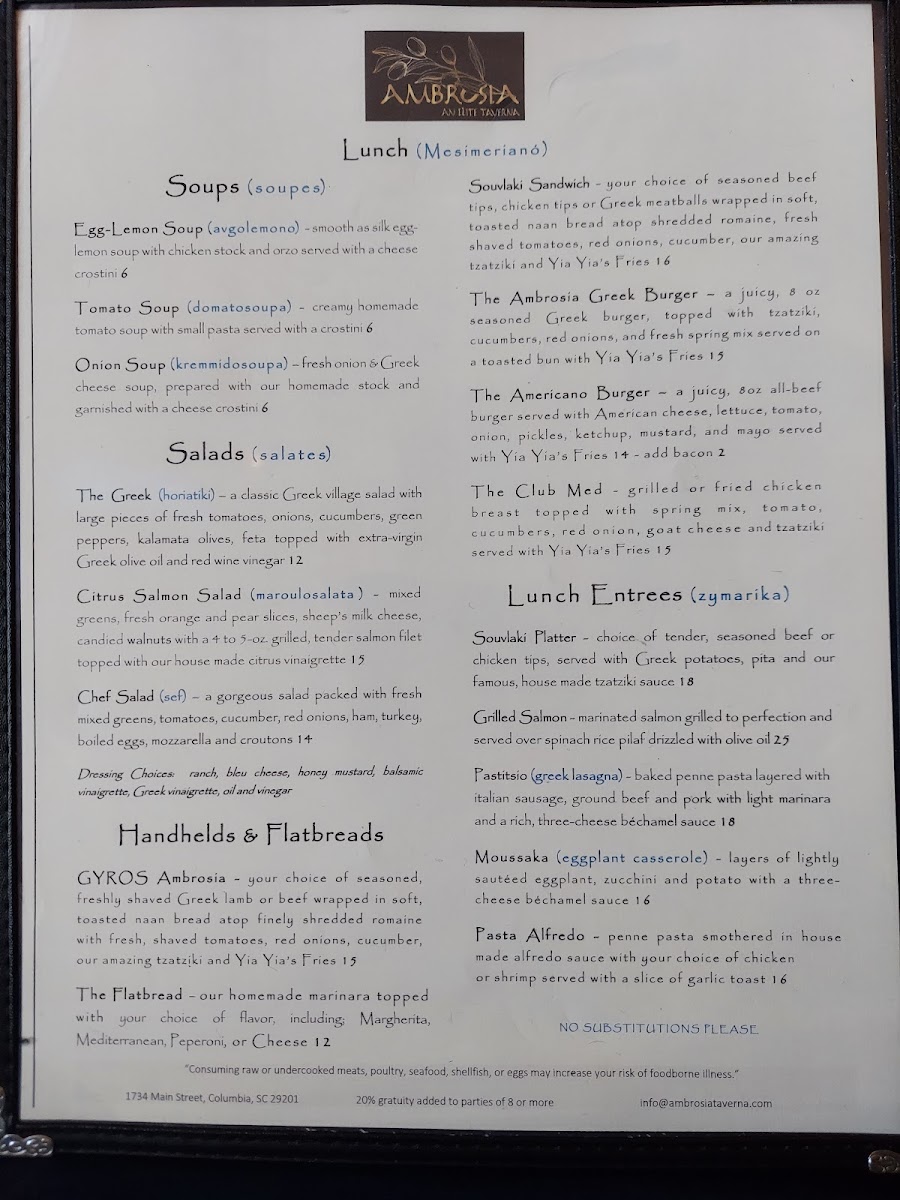 AMBROSIA
AN ELITE TAVERNA
Lunch (Mesimerianó)
Soups (soupes)
Egg-Lemon Soup (avgolemono) - smooth as silk egg-
lemon soup with chicken stock and orzo served with a cheese
crostini 6
Tomato Soup (domatosoupa) - creamy homemade
tomato soup with small pasta served with a crostini 6
Onion Soup (kremmidosoupa) – fresh onion & Greek
cheese soup, prepared with our homemade stock and
garnished with a cheese crostini 6
Salads (salates)
The Greek (horiatiki) – a classic Greek village salad with
large pieces of fresh tomatoes, onions, cucumbers, green
peppers, kalamata olives, feta topped with extra-virgin
Greek olive oil and red wine vinegar 12
Citrus Salmon Salad (maroulosalata ) - mixed
greens, fresh orange and pear slices, sheep's milk cheese,
candied walnuts with a 4 to 5-oz. grilled, tender salmon filet
topped with our house made citrus vinaigrette 15
Chef Salad (sef) – a gorgeous salad packed with fresh
mixed greens, tomatoes, cucumber, red onions, ham, turkey,
boiled eggs, mozzarella and croutons 14
Dressing Choices: ranch, bleu cheese, honey mustard, balsamic
vinaigrette, Greek vinaigrette, oil and vinegar
Handhelds & Flatbreads
GYROS Ambrosia - your choice of seasoned,
freshly shaved Greek lamb or beef wrapped in soft,
toasted naan bread atop finely shredded romaine
with fresh, shaved tomatoes, red onions, cucumber,
our amazing tzatziki and Yia Yia's Fries 15
The Flatbread - our homemade marinara topped
with your choice of flavor, including; Margherita,
Mediterranean, Peperoni, or Cheese 12
Souvlaki Sandwich - your choice of seasoned beef
tips, chicken tips or Greek meatballs wrapped in soft,
toasted naan bread atop shredded romaine, fresh
shaved tomatoes, red onions, cucumber, our amazing
tzatziki and Yia Yia's Fries 16
The Ambrosia Greek Burger – a juicy, 8 oz
seasoned Greek burger, topped with tzatziki,
cucumbers, red onions, and fresh spring mix served on
a toasted bun with Yia Yia's Fries 15
The Americano Burger – a juicy, 8oz all-beef
burger served with American cheese, lettuce, tomato,
onion, pickles, ketchup, mustard, and mayo served
with Yia Yia's Fries 14 - add bacon 2
The Club Med - grilled or fried chicken
breast topped with spring mix, tomato,
cucumbers, red onion, goat cheese and tzatziki
served with Yia Yia's Fries 15
Lunch Entrees (zymarika)
Souvlaki Platter - choice of tender, seasoned beef or
chicken tips, served with Greek potatoes, pita and our
famous, house made tzatziki sauce 18
Grilled Salmon - marinated salmon grilled to perfection and
served over spinach rice pilaf drizzled with olive oil 25
Pastitsio (greek lasagna) - baked penne pasta layered with
italian sausage, ground beef and pork with light marinara
and a rich, three-cheese béchamel sauce 18
Moussaka (eggplant casserole) - layers of lightly
sautéed eggplant, zucchini and potato with a three-
cheese béchamel sauce 16
Pasta Alfredo - penne pasta smothered in house
made alfredo sauce with your choice of chicken
or shrimp served with a slice of garlic toast 16
NO SUBSTITUTIONS PLEASE
"Consuming raw or undercooked meats, poultry, seafood, shellfish, or eggs may increase your risk of foodborne illness."
1734 Main Street, Columbia, SC 29201 20% gratuity added to parties of 8 or more info@ambrosiataverna.com